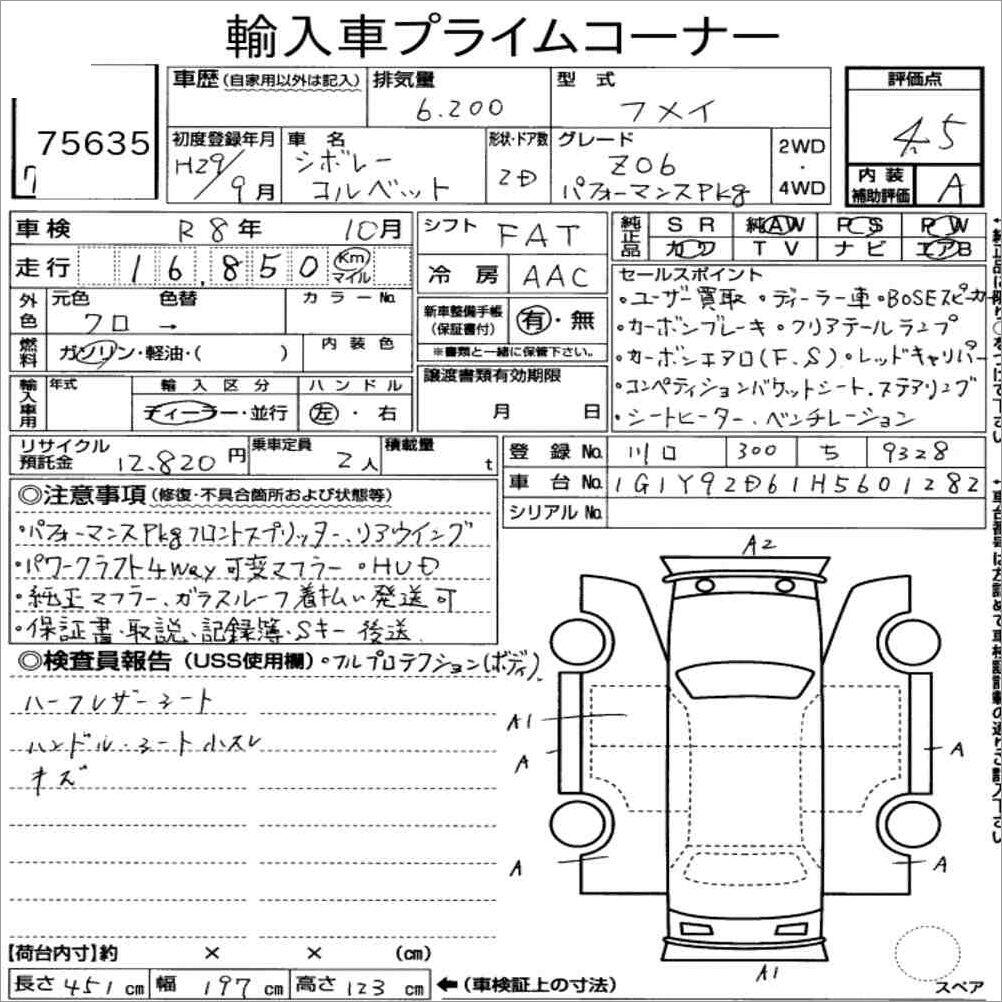 輸入車プライムコーナー
75635
7
車歴(自家用以外は記入)
排気量
6.200
型式
フメイ
評価点
4.5
内装補助評価
A
初度登録年月
H29/9月
車名
シボレー
コルベット
形状・ドア数
2D
グレード
Z06
パフォーマンスPkg
2WD
・
4WD
車検 R8年 10月
走行 16.850 Km マイル
シフト FAT
冷房 AAC
純正品 SR 純AW PS PW
カワ TV ナビ エアB
外色 元色 色替 カラーNo.
クロ →
燃料 ガソリン・軽油・( )
内装色
新車整備手帳(保証書付) 有・無
※書類と一緒に保管下さい。
セールスポイント
・ユーザー買取 ・ディーラー車 ・BOSEスピーカー
・カーボンブレーキ ・クリアテールランプ
・カーボンエアロ(F.S) ・レッドキャリパー
・コンペティションバケットシート.ステアリング
・シートヒーター.ベンチレーション
輸入車用 年式 輸入区分 ハンドル
ディーラー・並行 左・右
譲渡書類有効期限
月 日
リサイクル預託金 12.820円
乗車定員 2人
積載量 t
登録No. 川口 300 ち 9328
車台No. 1G1Y92D61H5601282
シリアルNo.
◎注意事項(修復・不具合箇所および状態等)
・パフォーマンスPkgフロントスプリッター.リアウイング
・パワークラフト4way可変マフラー ・HUD
・純正マフラー、ガラスルーフ着払い発送可
・保証書・取説、記録簿・Sキー後送
◎検査員報告(USS使用欄) ・フルプロテクション(ボディ)
ハーフレザーシート
ハンドル・シート小スレ
キズ
A2
A1
A
A
A
A
A1
スペア
【荷台内寸】約 × × (cm)
長さ 451cm 幅 197cm 高さ 123cm ←(車検証上の寸法)